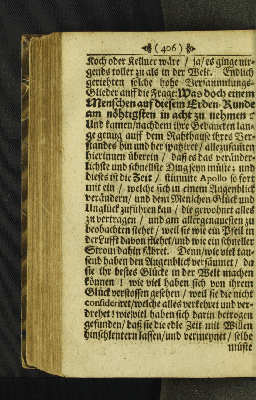 ( 406 )
Koch oder Kellner wäre / ja / es gienge nir-
gends toller zu als in der Welt. Endlich
geriehten solche hohe Versammlungs-
Glieder auff die Frage: Was doch einem
Menschen auf diesem Erden-Runde
am nöhtigsten in acht zu nehmen?
Und kamen / nachdem ihre Gedancken lan-
ge genug auff dem Rahthause ihres Ver-
standes hin und her spatziret / allezusamen
hierinnen überein / daß es das veränder-
lichste und schnellste Ding seyn müste; und
dieses ist die Zeit / stimmte Apollo so fort
mit ein / welche sich in einem Augenblick
verändern / und dem Menschen Glück und
Unglück zuführen kan / die gewohnet alles
zu vertragen / und am allergenauesten zu
beobachten stehet / weil sie wie ein Pfeil in
der Lufft davon fliehet / und wie ein schneller
Strom dahin fähret. Denn / wie viel tau-
send haben den Augenblick versäumet / da
sie ihr bestes Glücke in der Welt machen
können! wie viel haben sich von ihrem
Glück verstossen gesehen / weil sie die nicht
consideriret / welche alles verkehret und ver-
drehet! wie viel haben sich darin betrogen
gefunden / daß sie die edle Zeit mit Willen
hinschlentern lassen / und vermeynet / selbe
müste